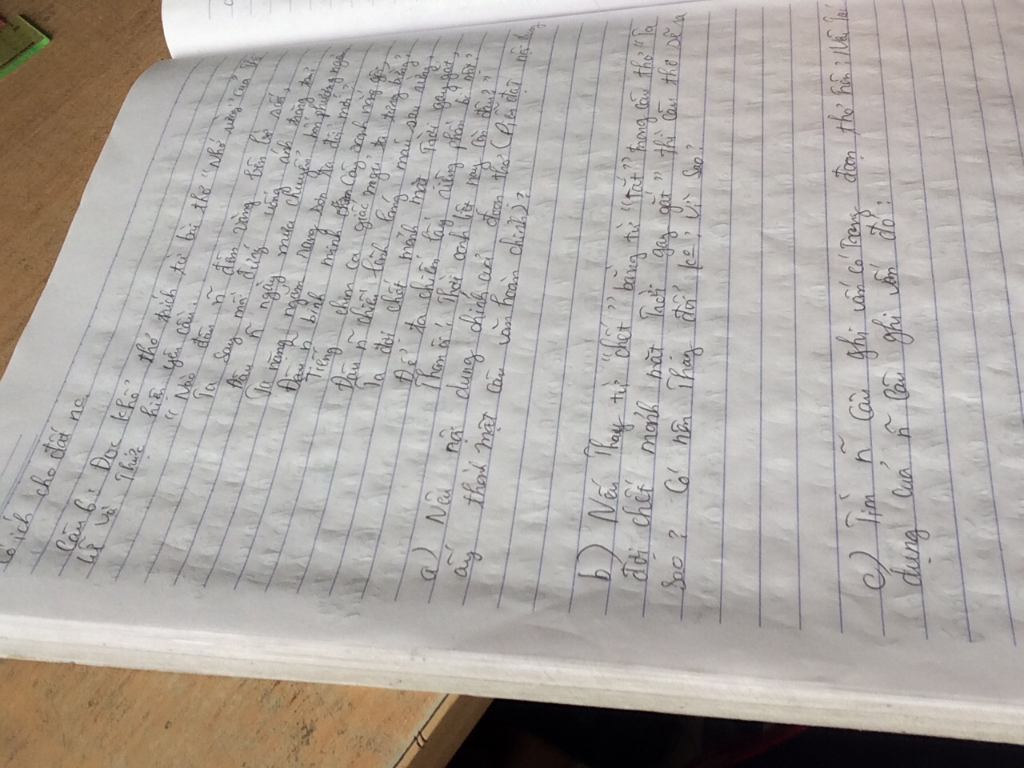 có ích cho đất nc
Câu 6: Đọc khổ thơ trích từ bài thơ "Nhớ rừng" của Thế
Lữ và thực hiện yêu cầu:
" Nào đâu ~ đêm vàng bên bờ suối,
Ta say mồi đứng uống ánh trăng tan?
Đâu ~ ngày mưa chuyển bốn phương ngàn
Ta lặng ngắm giang sơn ta đổi mới?
Đâu ~ bình minh cây xanh nắng gội
Tiếng chim ca giấc ngủ ta tưng bừng?
Đâu ~ chiều lênh láng máu sau rừng
Ta đợi chết mảnh mặt trời gay gắt,
Để ta chiếm lấy riêng phần bí mật?
Than ôi! Thời oanh liệt nay còn đâu?"
a) Nêu nội dung chính của đoạn thơ (Diễn đạt nội dung
ấy thành một câu văn hoàn chỉnh)?
b) Nếu thay từ "chết" bằng từ "tắt" trong câu thơ "Ta
đợi chết mảnh mặt trời gay gắt" thì câu thơ sẽ ra
sao? Có nên thay đổi ko? Vì sao?
c) Tìm ~ câu nghi vấn có trong đoạn thơ trên? Nêu tác
dụng của ~ câu nghi vấn đó?